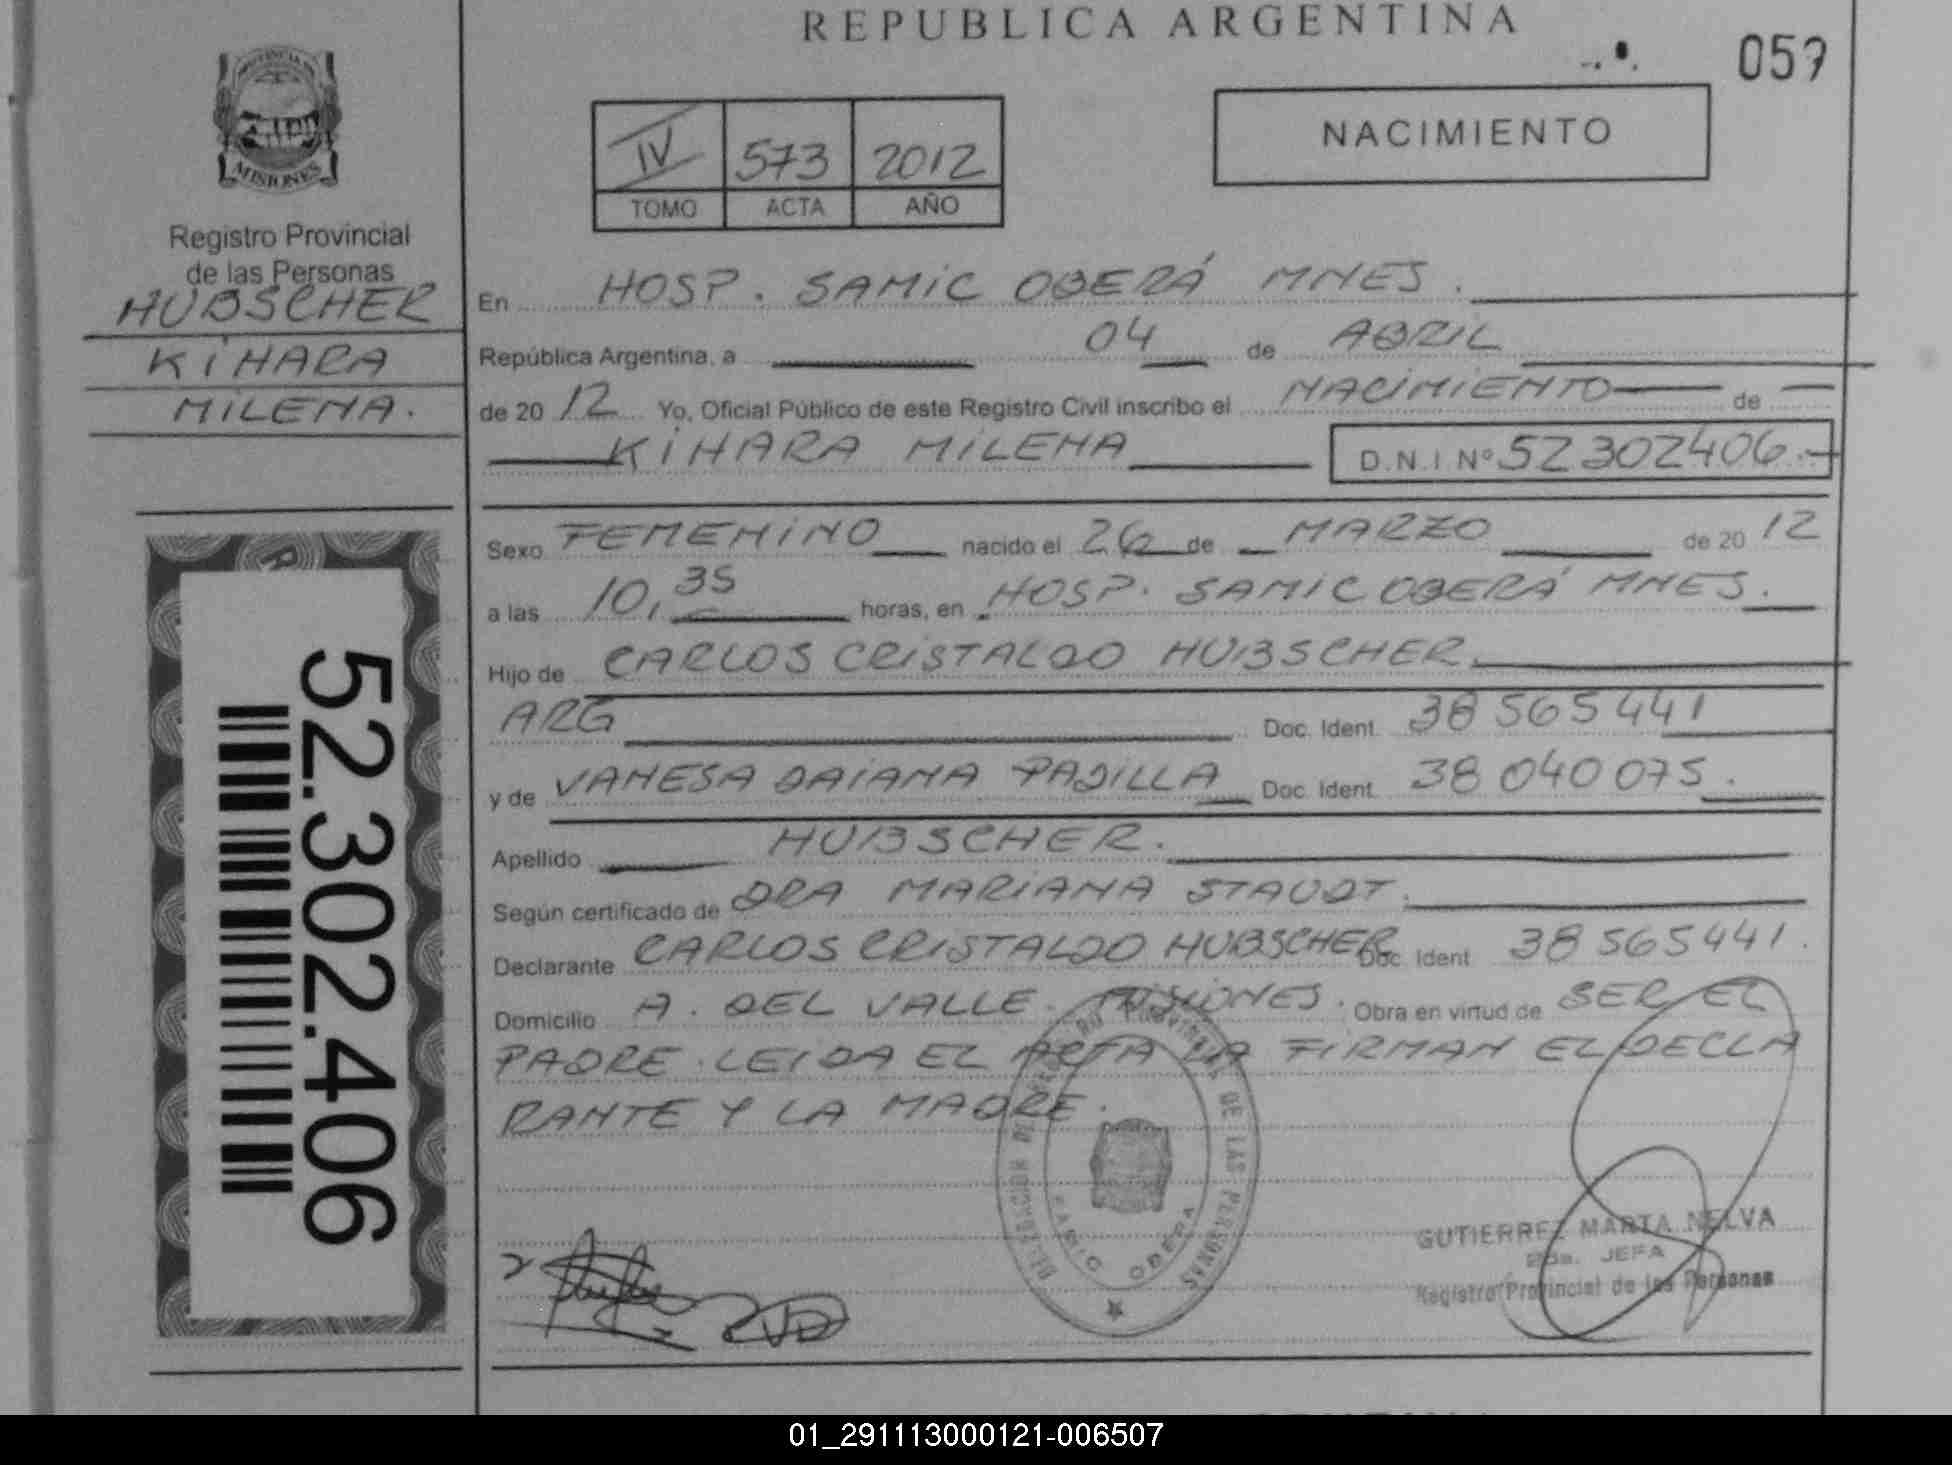 REPUBLICA ARGENTINA
059
PROVINCIA DE
MISIONES
Registro Provincial
de las Personas
HUBSCHER
KIHARA
MILENA.
52.302.406
IV 573 2012
TOMO ACTA AÑO
NACIMIENTO
En HOSP. SAMIC OBERÁ MNES.
República Argentina, a 04 de ABRIL
de 20 12 Yo, Oficial Público de este Registro Civil inscribo el NACIMIENTO de
KIHARA MILENA D.N.I Nº 52302406.-
Sexo FEMENINO nacido el 26 de MARZO de 20 12
a las 10,35 horas, en HOSP. SAMIC OBERÁ MNES.
Hijo de CARLOS CRISTALDO HUBSCHER.
ARG Doc. Ident. 38 565 441
y de VANESA DAIANA PADILLA Doc. Ident. 38 040 075.
Apellido HUBSCHER.
Según certificado de DRA MARIANA STAUDT.
Declarante CARLOS CRISTALDO HUBSCHER Doc. Ident. 38 565 441.
Domicilio A. DEL VALLE. MISIONES. Obra en virtud de SER EL
PADRE. LEIDA EL ACTA LA FIRMAN EL DECLA
RANTE Y LA MADRE.
DELEGACION DEL REGISTRO PROVINCIAL DE LAS PERSONAS
SAMIC OBERA
GUTIERREZ MARTA NELVA
2da. JEFA
Registro Provincial de las Personas
01_291113000121-006507